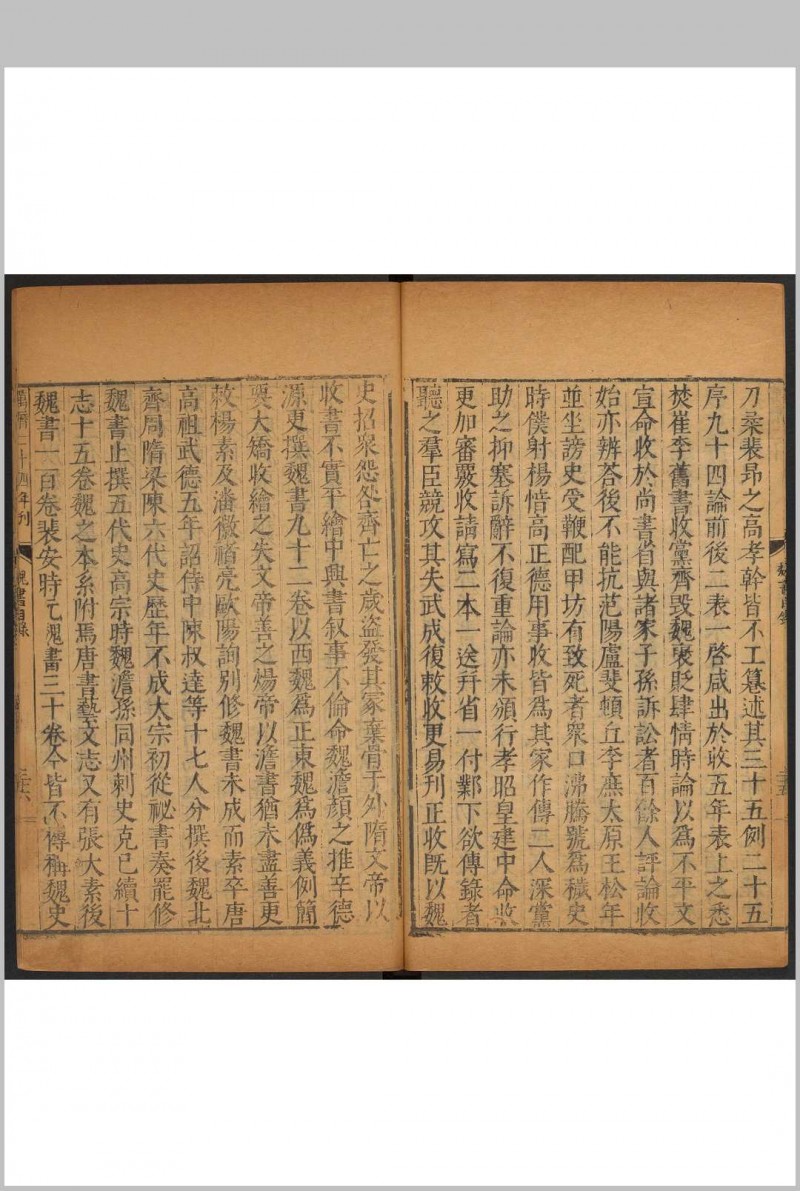 刀桒裴昻之高孝幹皆不工篹述其三十五例二十五
序九十四論前後二表一啓咸出於收五年表上之悉
焚崔李舊書收黨齊毁魏襃貶肆情時論以爲不平文
宣命收於尚書省與諸家子孫訴訟者百餘人評論收
始亦辨荅後不能抗范陽盧斐頓丘李庶太原王松年
並坐謗史受鞭配甲坊有致死者衆口沸騰號爲穢史
時僕射楊愔高正德用事收皆爲其家作傳二人深黨
助之抑塞訴辭不復重論亦未頒行孝昭皇建中命收
更加審覈收請寫二本一送并省一付鄴下欲傳錄者
聽之羣臣競攻其失武成復敕收更易刋正收旣以魏
史招衆怨咎齊亡之歲盗發其冢棄骨于外隋文帝以
收書不實平繪中興書叙事不倫命魏澹顔之推辛德
源更撰魏書九十二卷以西魏爲正東魏爲僞義例簡
要大矯收繪之失文帝善之煬帝以澹書猶未盡善更
敕楊素及潘徽禇亮歐陽詢別修魏書未成而素卒唐
高祖武德五年詔侍中陳叔達等十七人分撰後魏北
齊周隋梁陳六代史歷年不成太宗初從祕書奏罷修
魏書止撰五代史高宗時魏澹孫同州刺史克己續十
志十五卷魏之本系附焉唐書藝文志又有張大素後
魏書一百卷裴安時元魏書三十卷今皆不傳稱魏史
魏書目錄